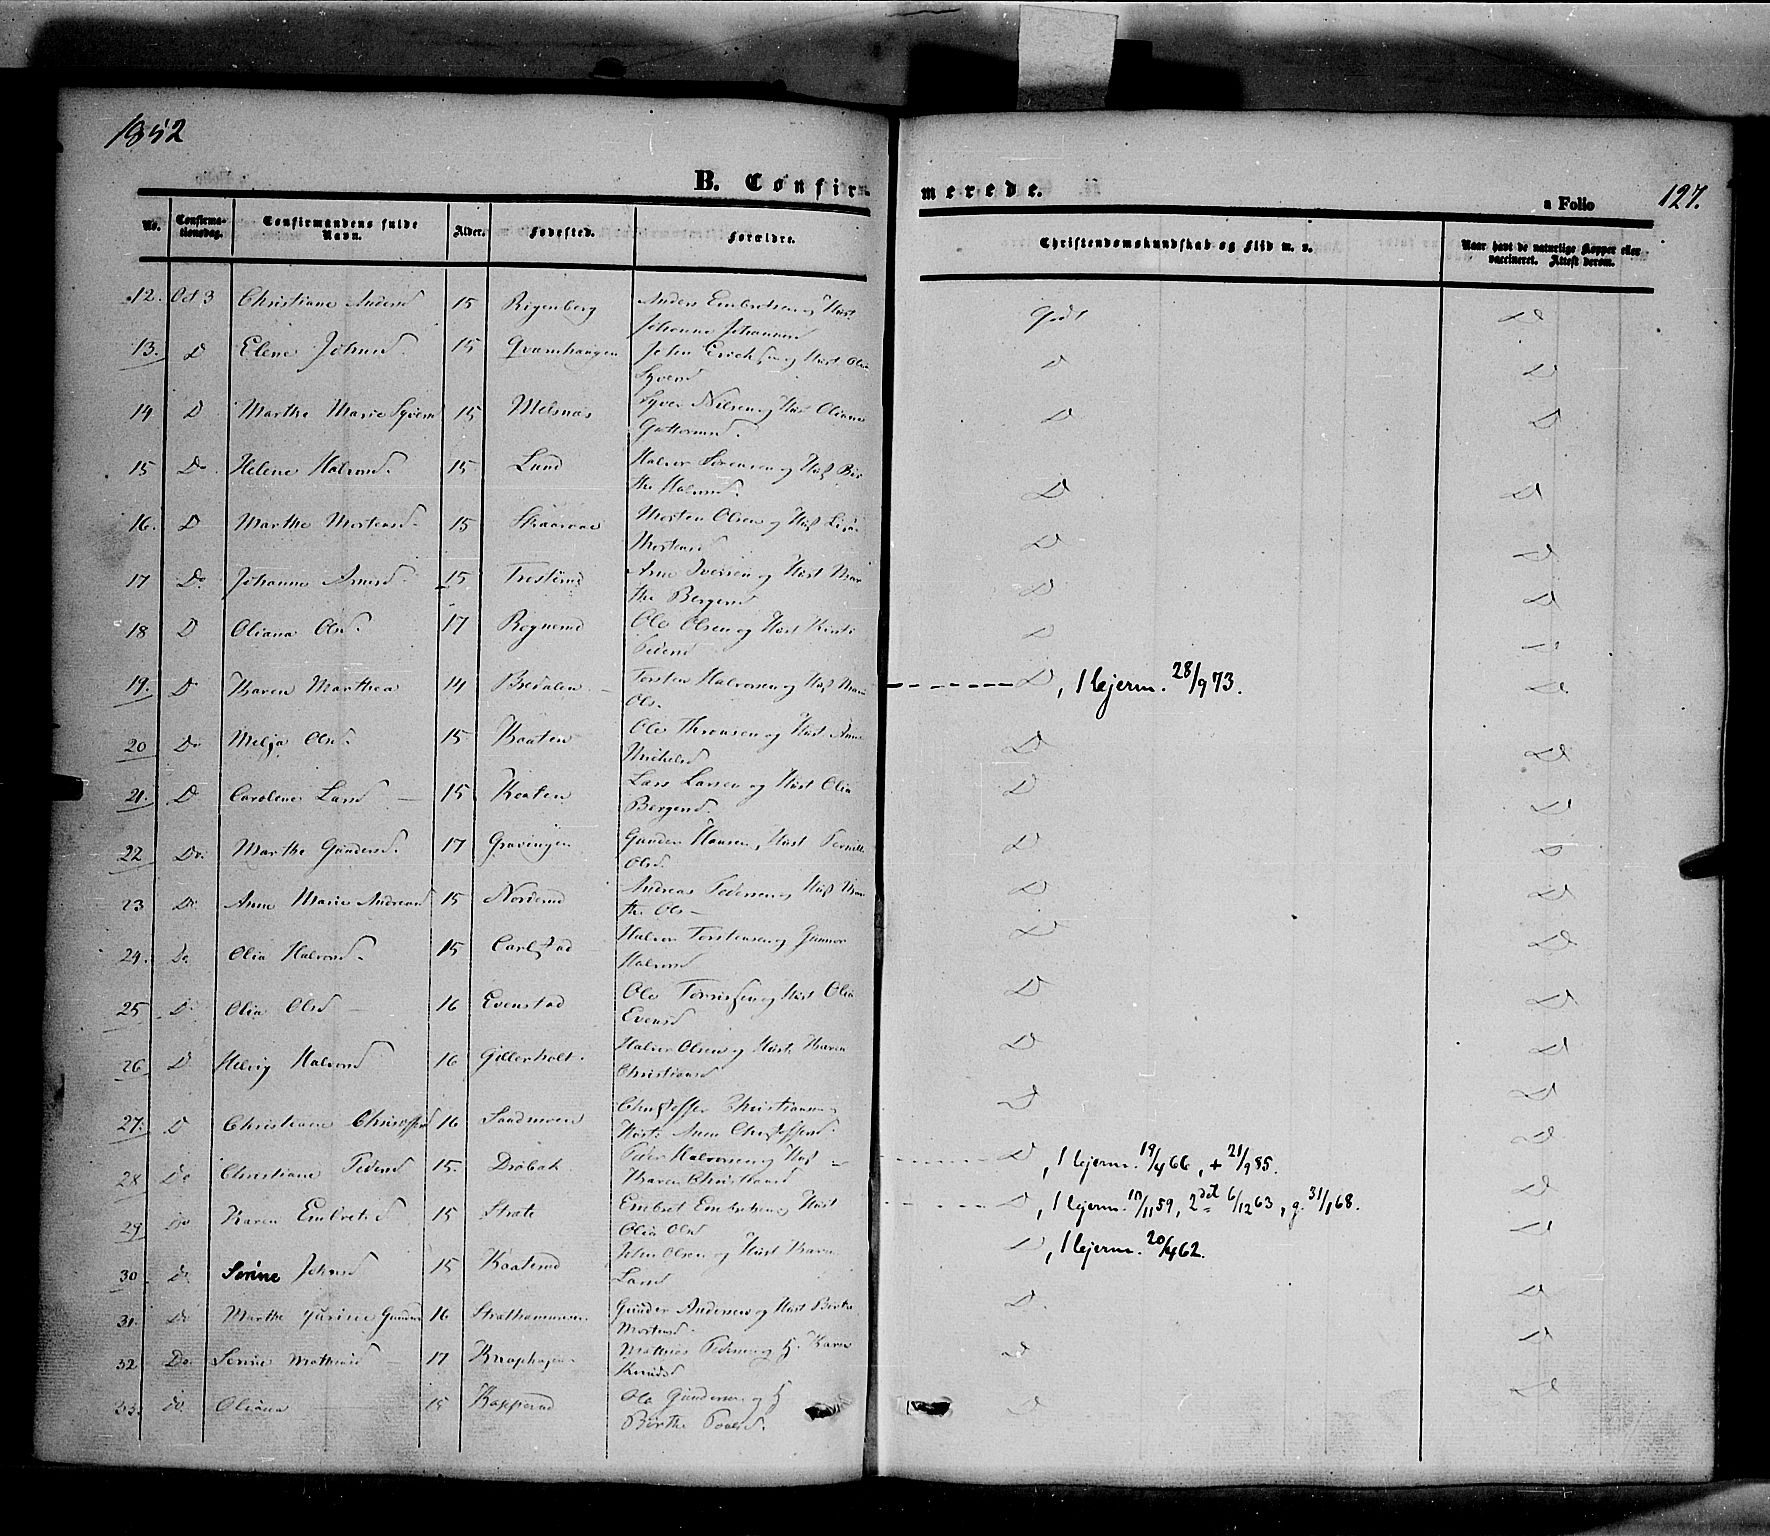 1852
B. Confir
merede.
a Folio 127.
No. Confirmationsdag. Confirmandens fulde Navn. Alder. Fødested. Forældre. Christendomskundskab og Flid m. v. Naar havt de naturlige Kopper eller vaccineret. Attest derom.
12. Oct 3 Christiane Andersd 15 Rigenberg Anders Embretsen og Hust Godt D
Johanne
13. D Elene Johnsd. 15 John Erichsen og Hust Olia D D
14 D Marthe Marie Syversd 15 Melsnæs Syver Nilsen og Hust Oliana D D
Guttormsd.
15 Do. Helene Halvorsd. 15 Lund Halvor Sørensen og Hust Bir D D
the Halvorsd.
16. D Marthe Mortensd. 15 Morten Olsen og Hust D D
Mortensd
17 Do. Johanne Arnesd. 15 Arne Iversen og Hust Mar D D
the Bergersd
18 D Oliana Olsd. 17 Rognerud Ole Olsen og Hust Kirsti D
Pedersd
19. D Karen Marthea 14 Torsten Halvorsen og Hust D, 1 hjem. 28/9 73. D
Ols.
20 Do Olsd. 15 Kaaten Ole Thronsen og Hust Anne D D
Michelsd
21. D Carolene Larsd 15 Kaaten Lars Larsen og Hust Olia D D
Bergersd.
22 Do. Marthe Gundersd. 17 Gravingen Gunder Hansen, Hust D D
Olsd.
23 Do Anne Marie Andreasd 15 Norderud Andreas Pedersen og Hust Mar D D
the Ols
24. Do Olia Halvorsd. 15 Carlstad Halvor Torstensen og Gunnor D D
Halvorsd
25 D. Olia Olsd 16 Evenstad Ole og Hust Olia D D
Evensd
26 D Helvig Halvorsd 16 Gillerholt. Halvor Olsen og Hust. Karen D D
Christiansd
27. D Christiane 16 Sandmoen Christoffer Christiansen og D D
Hust. Anne Christoffersd.
28 Do Christiane Pedersd 15. Drøbak Peder Halvorsen og Hust D, 1 hjem. 19/4 66, + 21/9 85. D
Karen Christiansd
29 Do Karen Embretsd 15 Embret Embretsen og Hust D, 1 hjem. 10/11 59, 2det 6/12 63, g. 31/1 68. D
Olia Olsd
30 Do. Serine Johnsd 15 Kaaterud John Olsen og Hust Karen D, 1 hjem. 20/4 62.
Larsd
31. Do Marthe Jurine Gunders 16 Gunder Andersen og Hust Birthe D. D
Mortensd.
32. Do. Serine Mathiasd 17 Mathias Pedersen og H. Karen D
Knudsd
33. Do. Oliana 15 Kopperud Ole Gundersen og H D D
Birthe Poulsd.